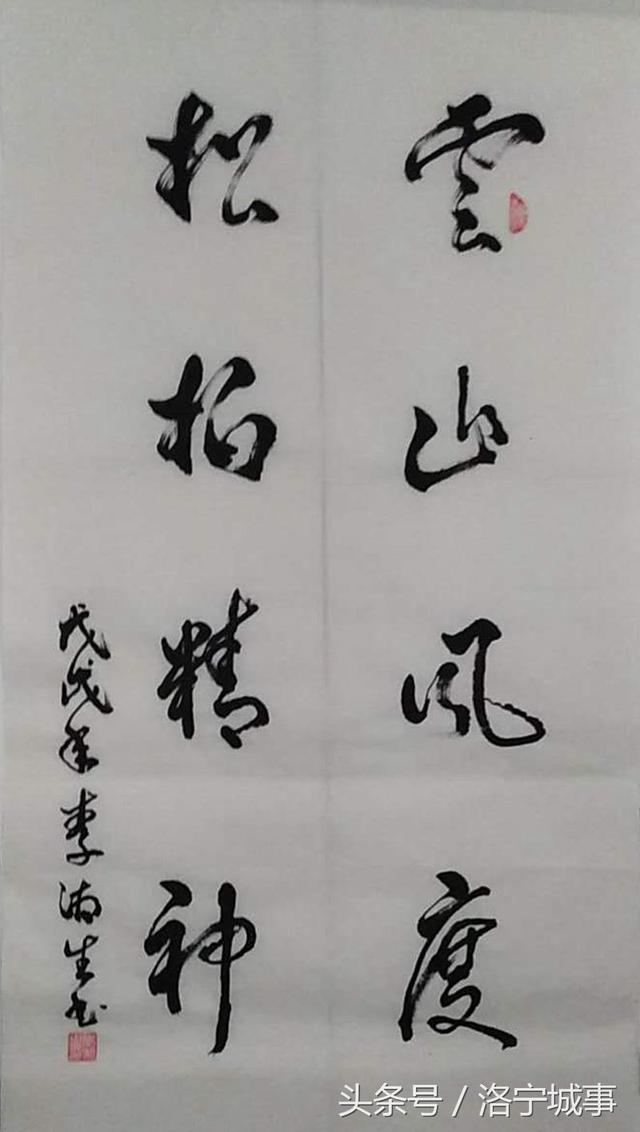 雲山风度
松柏精神
戊戌年李海生书
头条号 / 洛宁城事